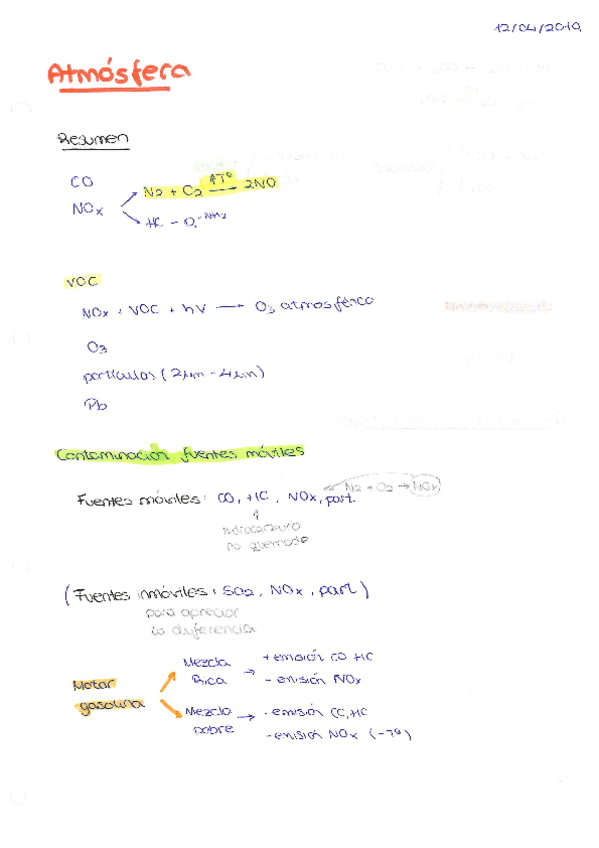 12/04/2010
Atmósfera
Resumen
CO
NOx
N2 + O2 ↑Tº → 2NO
HC - O - NH2
VOC
NOx + VOC + hV → O3 atmosférico
O3
partículas (2µm - 4µm)
Pb
Contaminación fuentes móviles
Fuentes móviles: CO, HC, NOx, part.
N2 + O2 → NOx
hidrocarburo
no quemado
(Fuentes inmóviles: SO2, NOx, part)
para apreciar
la diferencia
Motor
gasolina
Mezcla
Rica
→ + emisión CO HC
- emisión NOx
Mezcla
pobre
→ - emisión CO, HC
- emisión NOx (-Tº)